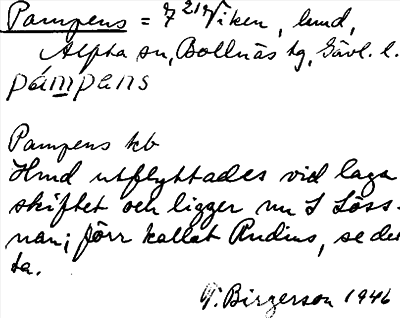 Pampens = 7²¹ Viken, hmd,
Alfta sn, Bollnäs tg, Gävl. l.
pámpens
Pampens kb
Hmd utflyttades vid laga
skiftet och ligger nu I Löss-
nan; förr kallat Rudius, se det-
ta.
G. Birgerson 1946